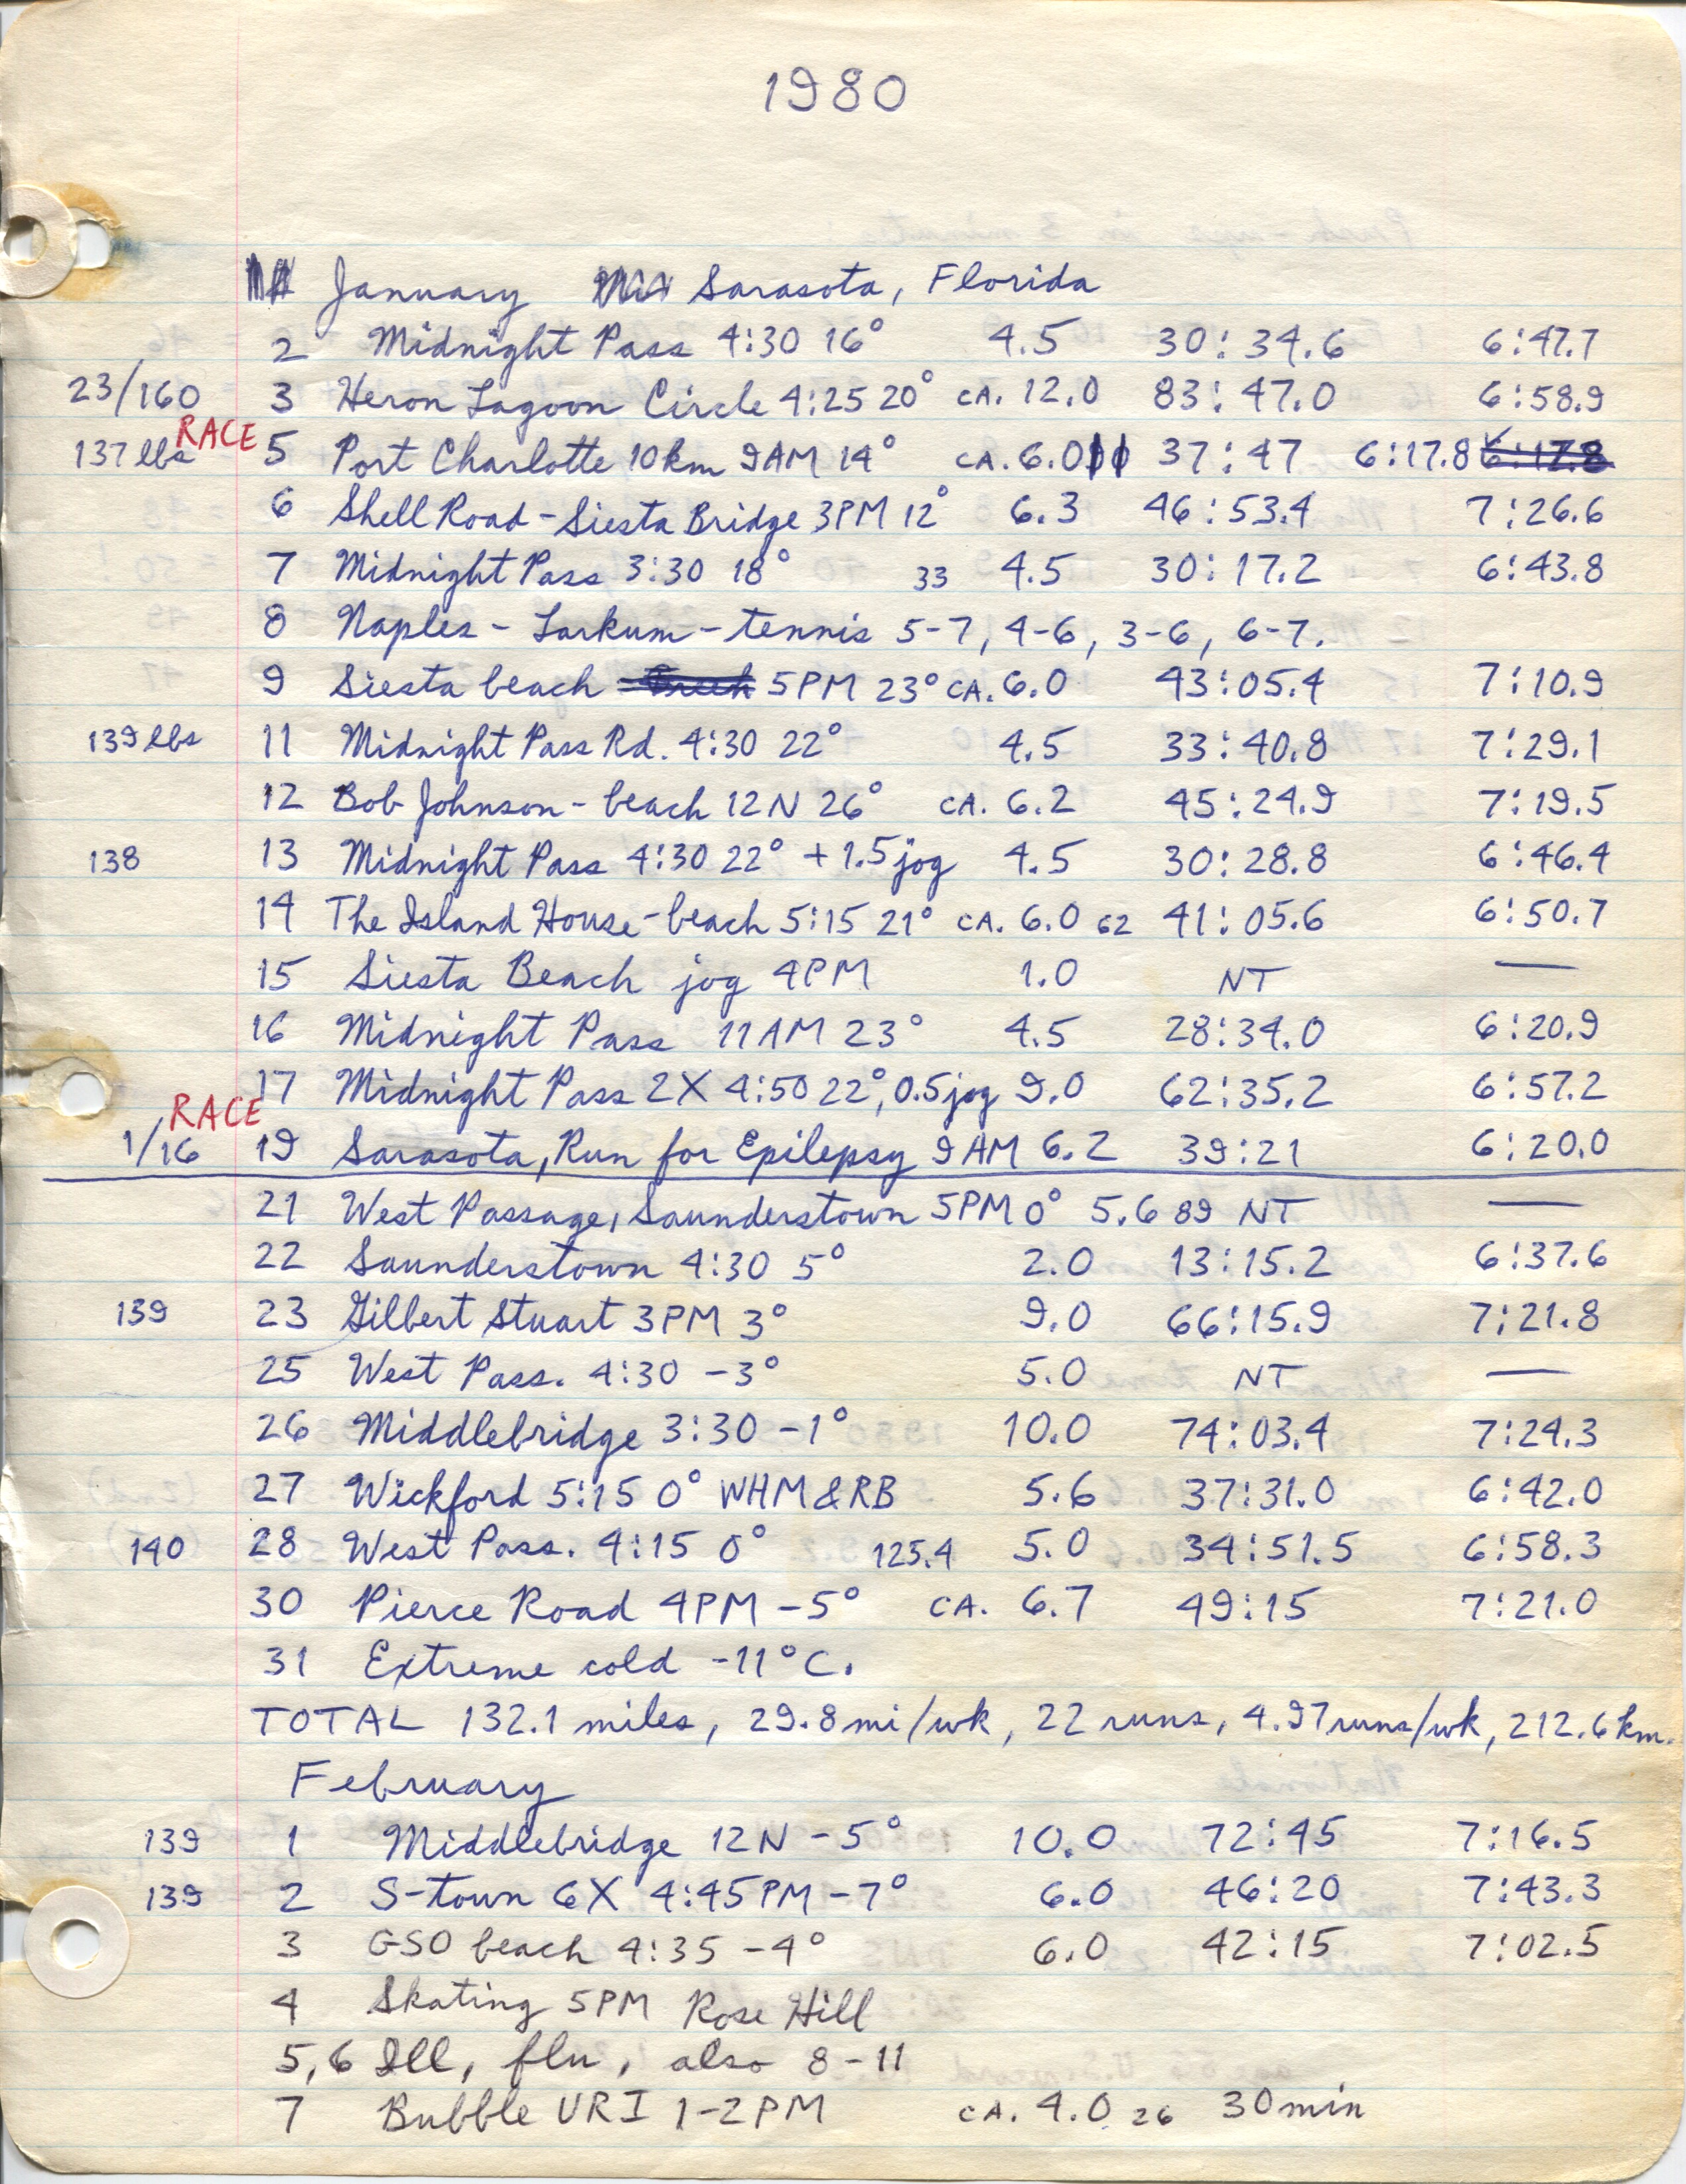 1980
January Sarasota, Florida
2 Midnight Pass 4:30 16° 4.5 30:34.6 6:47.7
23/160 3 Heron Lagoon Circle 4:25 20° CA. 12.0 83:47.0 6:58.9
137 lbs RACE 5 Port Charlotte 10km 9AM 14° CA. 6.0 37:47 6:17.8 6:17.8
6 Shell Road - Siesta Bridge 3PM 12° 6.3 46:53.4 7:26.6
7 Midnight Pass 3:30 18° 33 4.5 30:17.2 6:43.8
8 Naples - Larkum - tennis 5-7, 4-6, 3-6, 6-7.
9 Siesta beach 5PM 23° CA. 6.0 43:05.4 7:10.9
139 lbs 11 Midnight Pass Rd. 4:30 22° 4.5 33:40.8 7:29.1
12 Bob Johnson - beach 12N 26° CA. 6.2 45:24.9 7:19.5
138 13 Midnight Pass 4:30 22° + 1.5 jog 4.5 30:28.8 6:46.4
14 The Island House - beach 5:15 21° CA. 6.0 62 41:05.6 6:50.7
15 Siesta Beach jog 4PM 1.0 NT —
16 Midnight Pass 11AM 23° 4.5 28:34.0 6:20.9
17 Midnight Pass 2X 4:50 22°, 0.5 jog 9.0 62:35.2 6:57.2
1/16 RACE 19 Sarasota, Run for Epilepsy 9AM 6.2 39:21 6:20.0
21 West Passage, Saunderstown 5PM 0° 5.6 89 NT —
22 Saunderstown 4:30 5° 2.0 13:15.2 6:37.6
139 23 Gilbert Stuart 3PM 3° 9.0 66:15.9 7:21.8
25 West Pass. 4:30 -3° 5.0 NT —
26 Middlebridge 3:30 -1° 10.0 74:03.4 7:24.3
27 Wickford 5:15 0° WHM & RB 5.6 37:31.0 6:42.0
140 28 West Pass. 4:15 0° 125.4 5.0 34:51.5 6:58.3
30 Pierce Road 4PM -5° CA. 6.7 49:15 7:21.0
31 Extreme cold -11°C.
TOTAL 132.1 miles, 29.8 mi/wk, 22 runs, 4.97 runs/wk, 212.6 km.
February
139 1 Middlebridge 12N -5° 10.0 72:45 7:16.5
139 2 S-town 6X 4:45PM -7° 6.0 46:20 7:43.3
3 GSO beach 4:35 -4° 6.0 42:15 7:02.5
4 Skating 5PM Rose Hill
5,6 Ill, flu, also 8-11
7 Bubble URI 1-2PM CA. 4.0 26 30 min